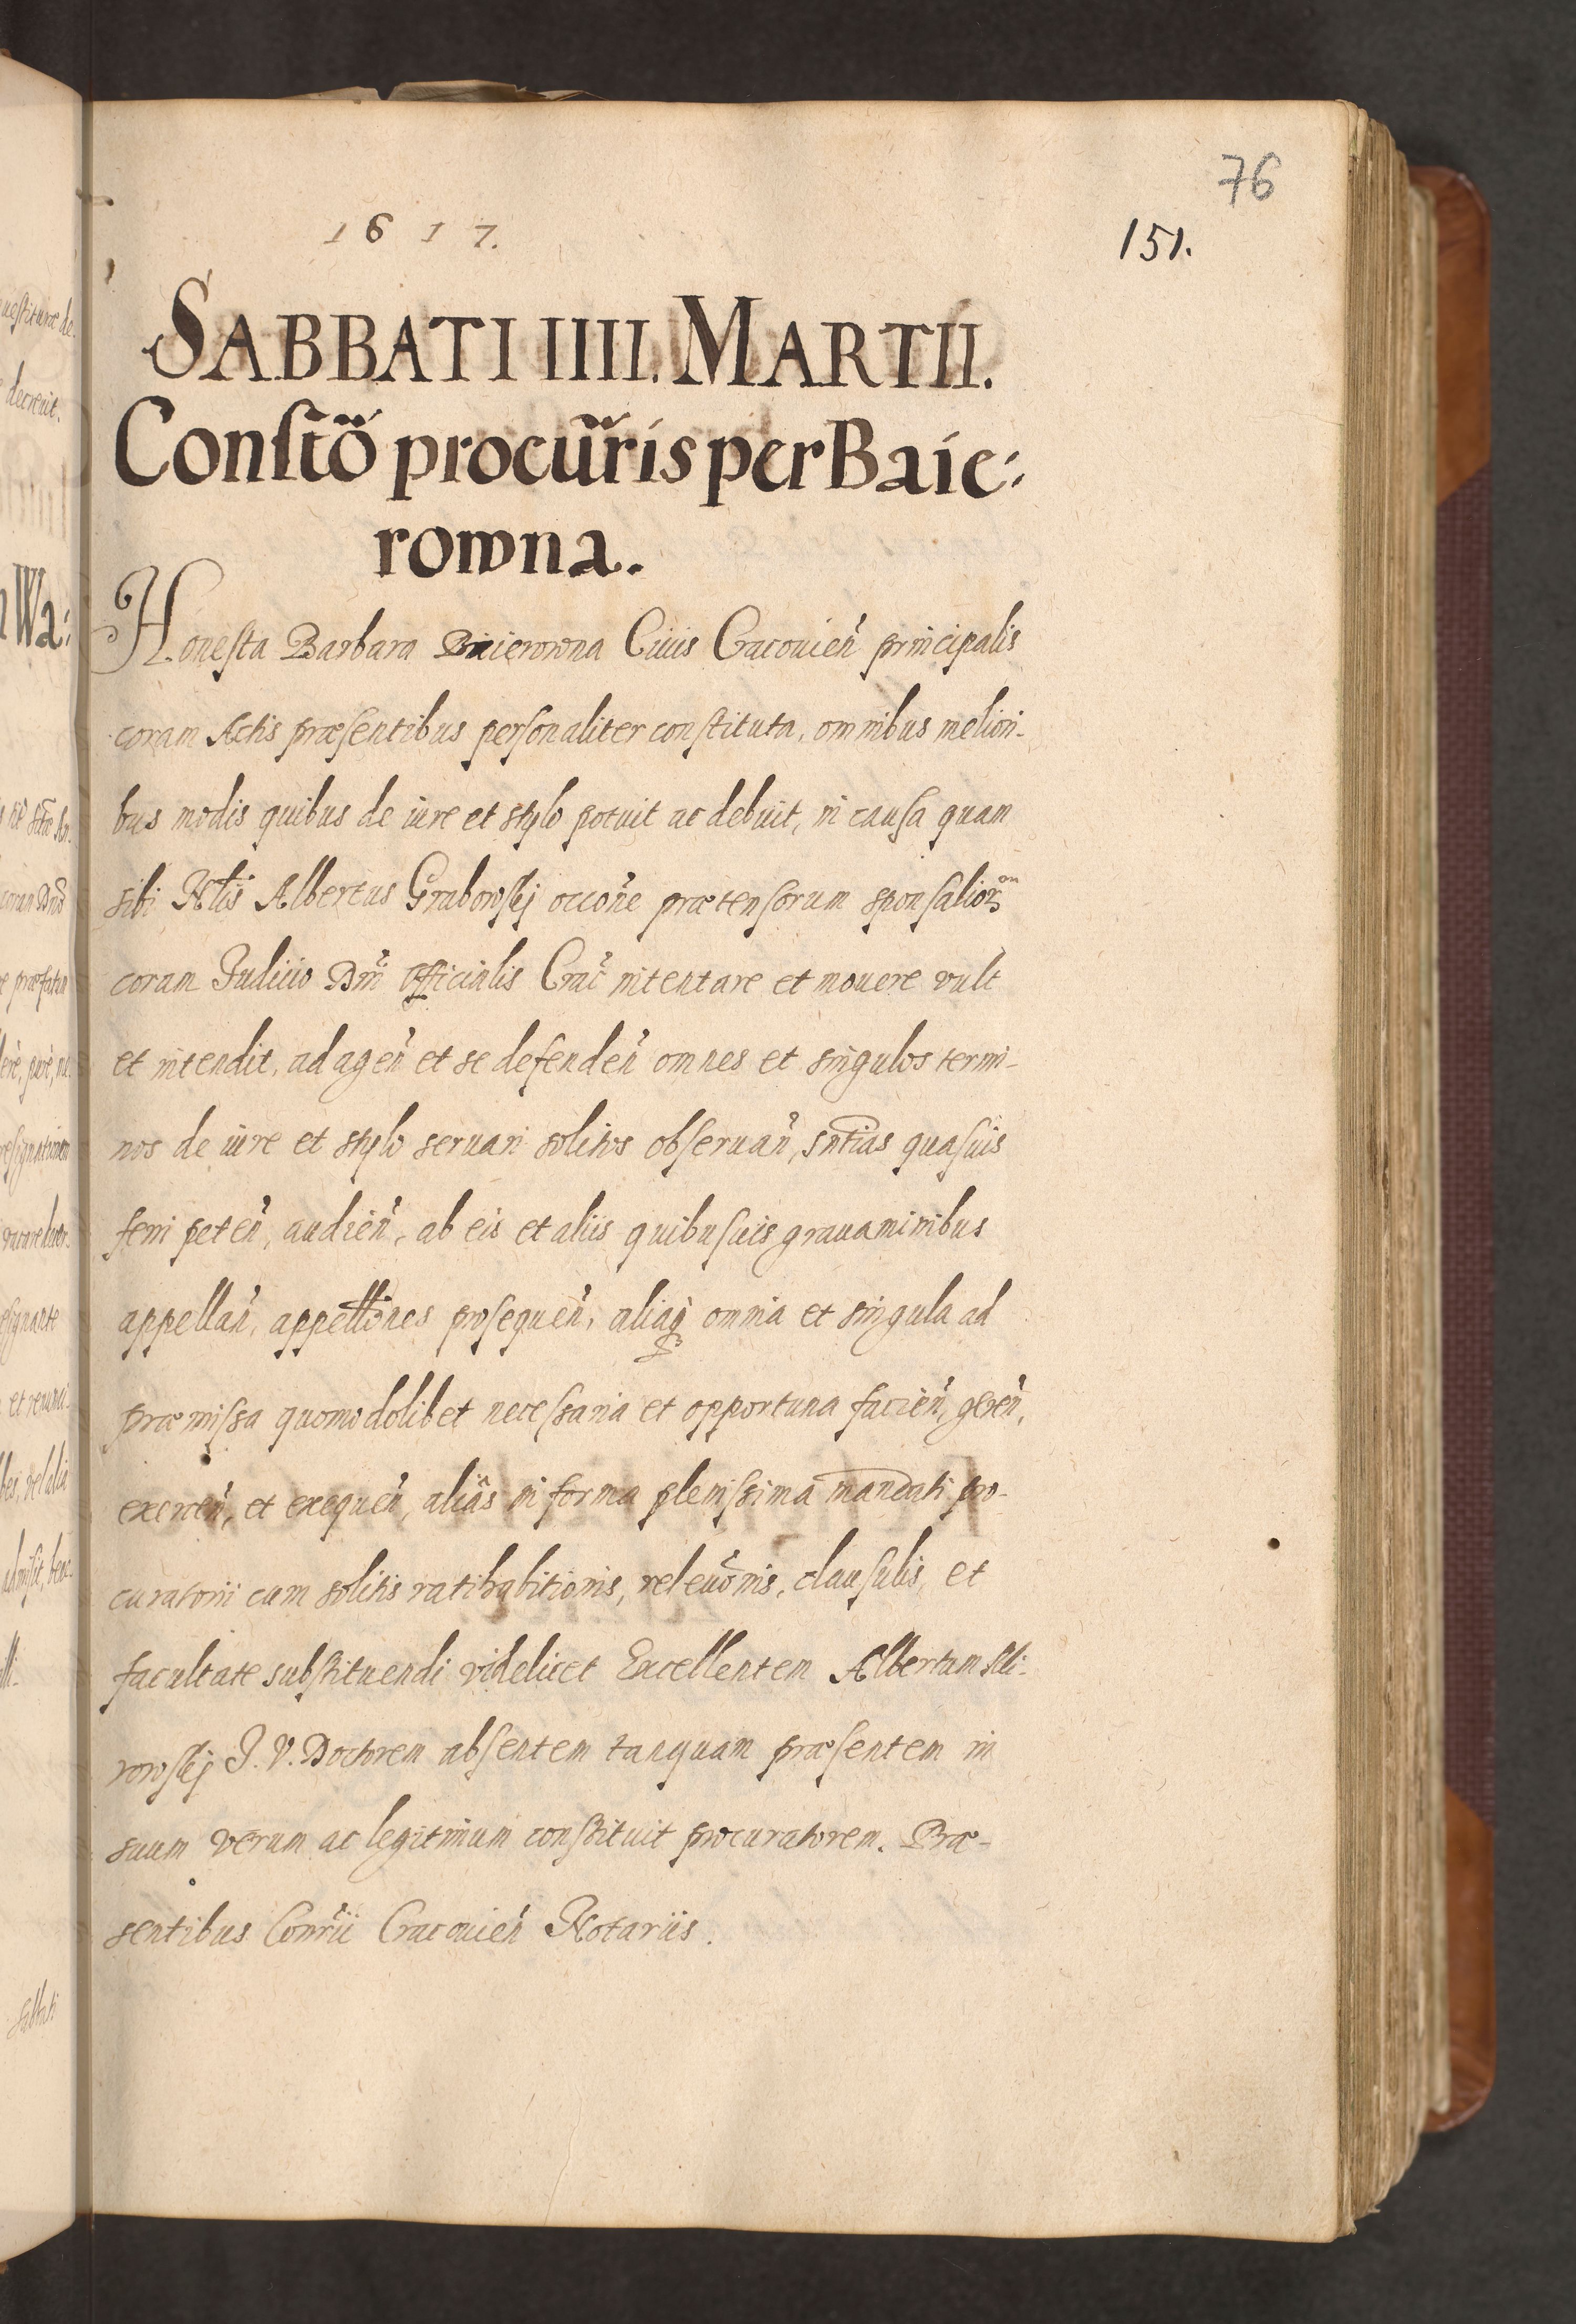 76
1617.
151.
SABBATI IIII. MARTII.
Constõ procur̃is per Baie:
rowna.
Honesta Barbara Baierowna Ciuis Cracouien̄ principalis
coram Actis præsentibus personaliter constituta, omnibus meliori-
bus modis quibus de iure et stylo potuit ac debuit, in causa quam
sibi Nłis Albertus Grabowskj occõne prætensorum sponsalior̃
coram Judicio Dm̃i Officialis Crac̃ intentare et mouere vult
et intendit, ad agen̄ et se defenden̄ omnes et singulos termi-
nos de iure et stylo seruari solitos obseruan̄, sn̄tias quasuis
ferri peten̄, audien̄, ab eis et aliis quibusuis grauaminibus
appellan̄, appellõnes prosequen̄, aliaq̨ omnia et singula ad
præmissa quomodolibet necessaria et opportuna facien̄, geren̄,
exercen̄, et exequen̄, aliâs in forma plenissima mandati pro-
curatorii cum solitis ratihabitionis, releuõnis, clausulis, et
facultate substituendi videlicet Excellentem Albertum
rowskj J. V. Doctorem absentem tanquam præsentem in
suum verum ac legitimum constituit procuratorem. Præ-
sentibus Conr̃ii Cracouien̄ Notariis.